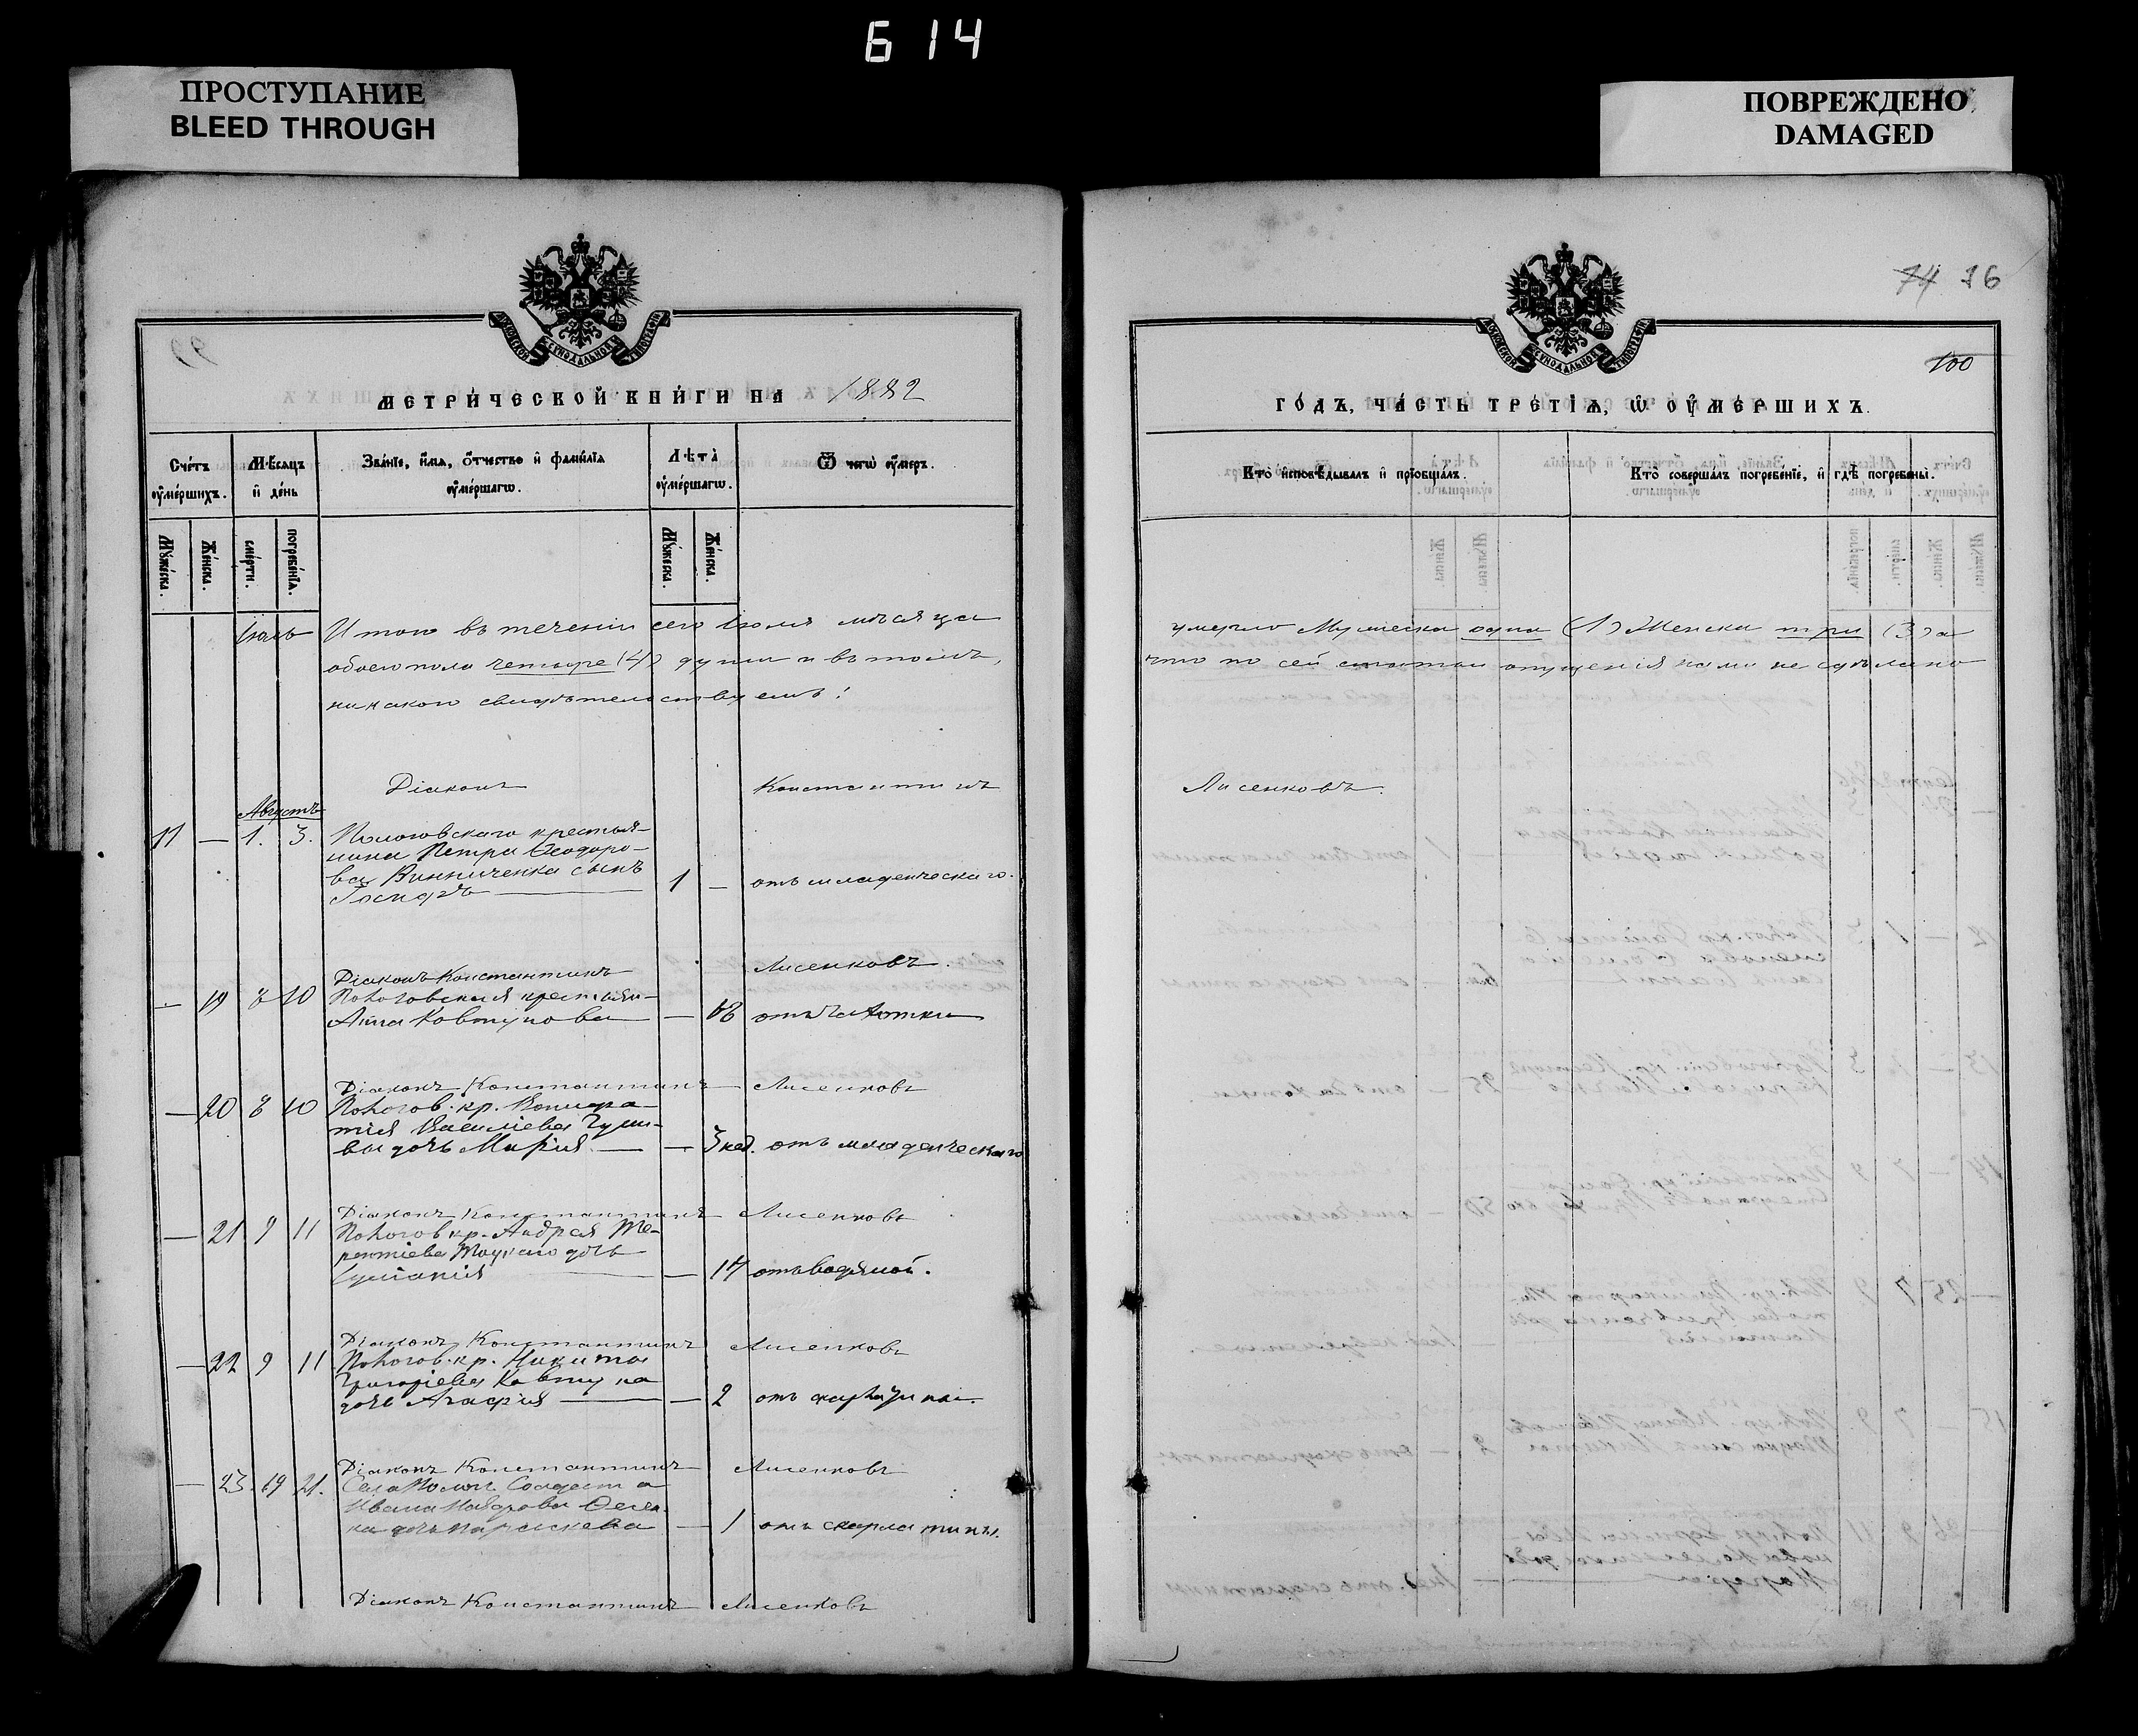 Б 14
ПРОСТУПАНИЕ
BLEED THROUGH
ПОВРЕЖДЕНО
DAMAGED
74 76
100
МЕТРИЧЕСКОЙ КНИГИ НА 1882
ГОДЪ, ЧАСТЬ ТРЕТІѦ, Ѡ ОУМЕРШИХЪ.
Счетъ оумершихъ.
Мѣсяцъ и день
Званіе, имя, отчество и фамилія оумершагѡ.
Лѣта оумершагѡ.
Ѿ чегѡ оумеръ.
Кто исповѣдывалъ и пріобщалъ.
Кто совершалъ погребеніе, и гдѣ погребены.
Мужеска.
Женска.
смерти.
погребенія.
Мужеска.
Женска.
Іюль Итого въ теченіи сего Іюля мѣсяца умерло Мужеска одна (1) Женска три (3) а
обоего пола четыре (4) души и въ томъ, что по сей статьи опущенія нами не сдѣлано
никакого свидѣтельствуемъ:
Діаконъ Константинъ Лисенковъ.
Августъ
11 — 1. 3. Пологовскаго крестья-
нина Петра Ѳеодоро-
ва Винниченка сынъ
1 — отъ младенческаго.
Діаконъ Константинъ Лисенковъ.
— 19 8 10 Пологовская крестьян-
Анна Ковтунова — 18 отъ чахотки
Діаконъ Константинъ Лисенковъ
— 20 8 10 Пологов. кр.
Василіева
дочь Марія — — 3 нед. отъ младенческаго
Діаконъ Константинъ Лисенковъ
— 21 9 11 Пологов кр. Андрея Те-
рентіева дочь
— 14 отъ водяной.
Діаконъ Константинъ Лисенковъ
— 22 9 11 Пологов. кр. Никиты
Григоріева Ковтуна
дочь Агафія — — 2 отъ
Діаконъ Константинъ Лисенковъ
— 23. 19 21. Села Солдата
Ивана
дочь Параскева — 1 отъ скарлатины.
Діаконъ Константинъ Лисенковъ